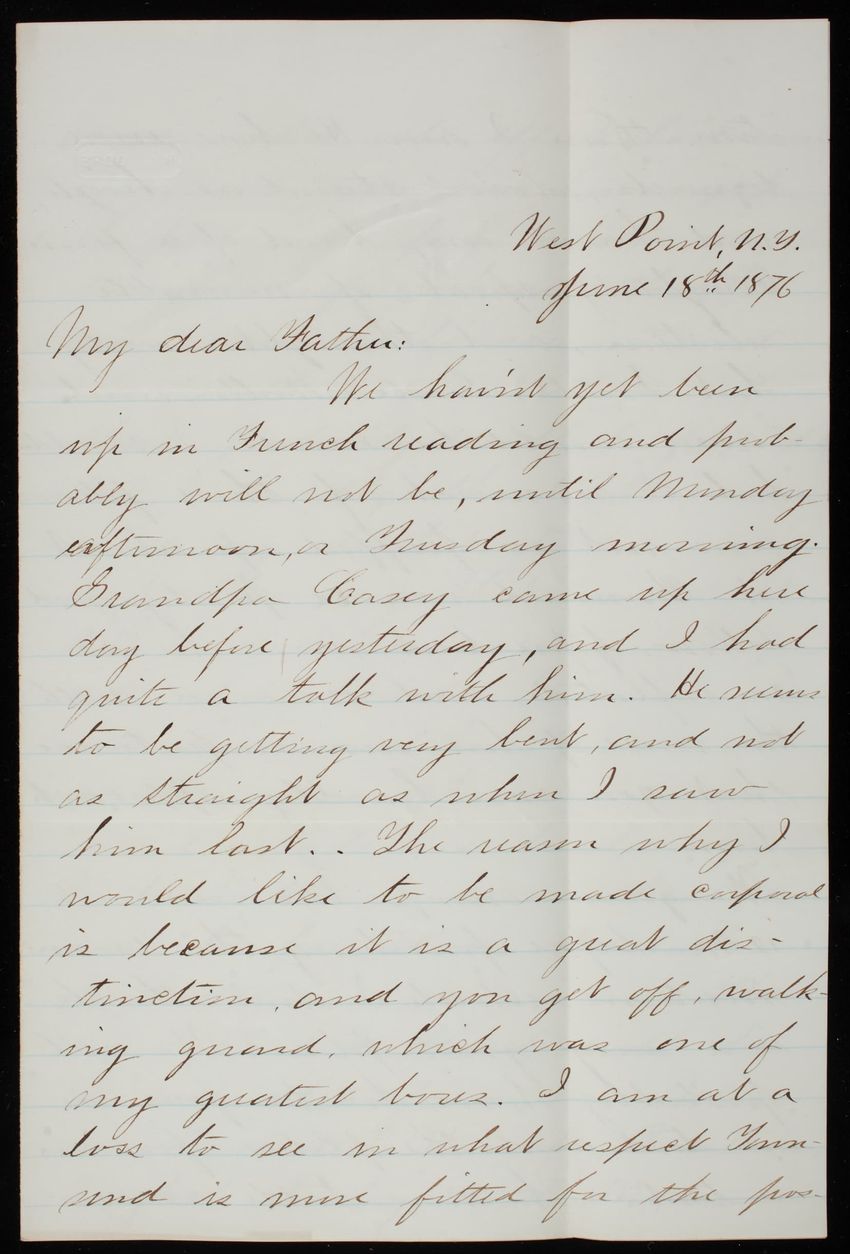 West Point, N.Y.
June 18th 1876
My dear Father:
We hav'nt yet been
up in French reading and prob-
ably will not be, until Monday
afternoon, or Tuesday morning.
Grandpa Casey came up here
day before yesterday, and I had
quite a talk with him. He seems
to be getting very bent, and not
as straight as when I saw
him last. . The reason why I
would like to be made corporal
is because it is a great dis-
tinction, and you get off, walk-
ing guard, which was one of
my greatest bores. I am at a
loss to see in what respect Town-
send is more fitted for the pos-